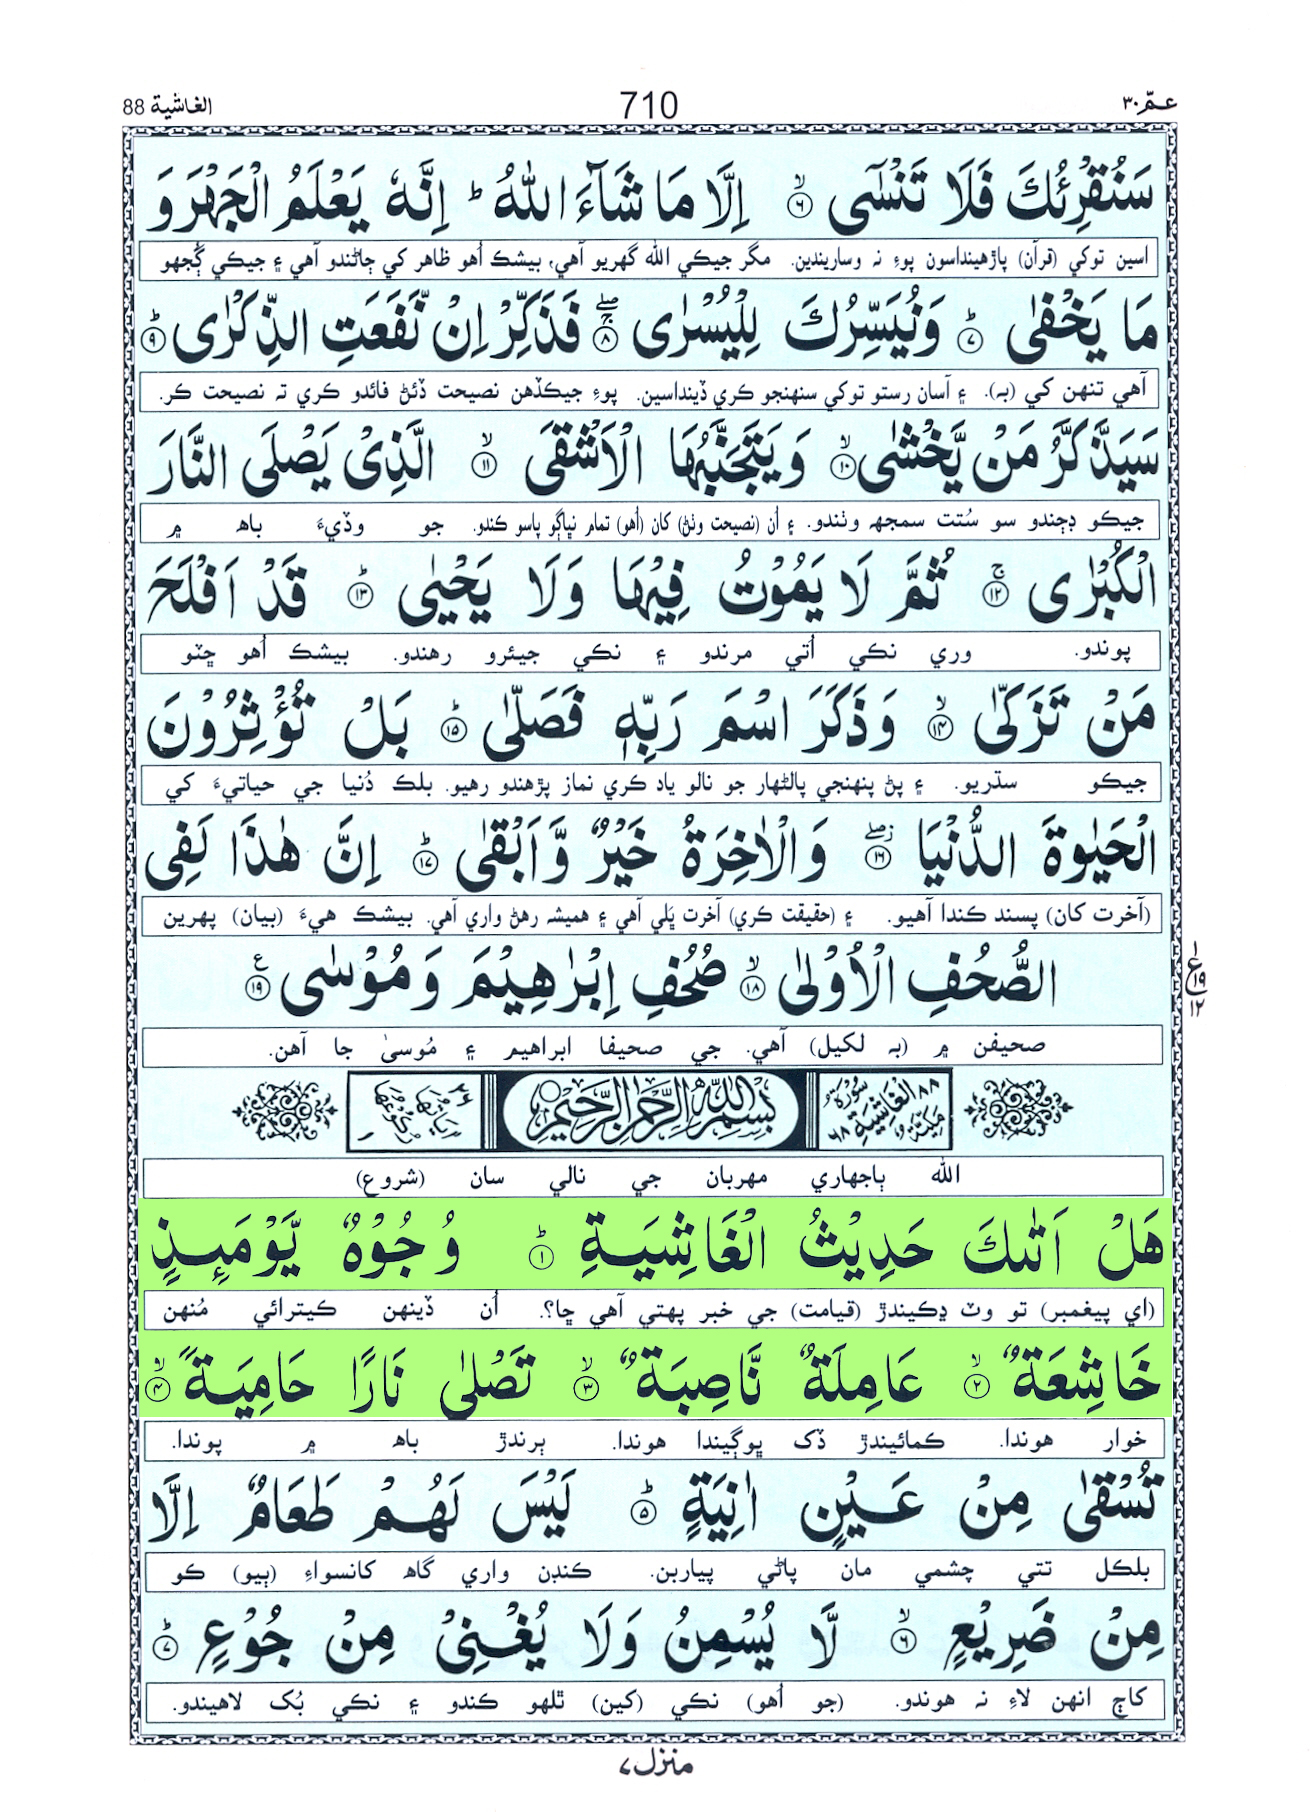 الغاشية 88
710
عمّ ٣٠
سَنُقْرِئُكَ فَلَا تَنْسٰٓى ۙ﴿۶﴾ اِلَّا مَا شَآءَ اللّٰهُ ؕ اِنَّهٗ يَعْلَمُ الْجَهْرَ وَ
اسين توکي (قرآن) پاڙهينداسون پوءِ نہ وساريندين. مگر جيڪي الله گهريو آهي، بيشڪ اُهو ظاهر کي ڄاڻندو آهي ۽ جيڪي ڳُجهو
مَا يَخْفٰى ؕ﴿۷﴾ وَنُيَسِّرُكَ لِلْيُسْرٰى ۚۖ﴿۸﴾ فَذَكِّرْ اِنْ نَّفَعَتِ الذِّكْرٰى ؕ﴿۹﴾
آهي تنهن کي (بہ). ۽ آسان رستو توکي سنهنجو ڪري ڏينداسين. پوءِ جيڪڏهن نصيحت ڏئڻ فائدو ڪري تہ نصيحت ڪر.
سَيَذَّكَّرُ مَنْ يَّخْشٰى ۙ﴿۱۰﴾ وَيَتَجَنَّبُهَا الْاَشْقَى ۙ﴿۱۱﴾ الَّذِىْ يَصْلَى النَّارَ
جيڪو ڊڄندو سو سُتت سمجهہ وٺندو. ۽ اُن (نصيحت وٺڻ) کان (اُهو) تمام نڀاڳو پاسو ڪندو. جو وڏيءَ باھ ۾
الْكُبْرٰى ۚ﴿۱۲﴾ ثُمَّ لَا يَمُوْتُ فِيْهَا وَلَا يَحْيٰى ؕ﴿۱۳﴾ قَدْ اَفْلَحَ
پوندو. وري نڪي اُتي مرندو ۽ نڪي جيئرو رهندو. بيشڪ اُهو ڇٽو
مَنْ تَزَكّٰى ۙ﴿۱۴﴾ وَذَكَرَ اسْمَ رَبِّهٖ فَصَلّٰى ؕ﴿۱۵﴾ بَلْ تُؤْثِرُوْنَ
جيڪو سڌريو. ۽ پڻ پنهنجي پالڻهار جو نالو ياد ڪري نماز پڙهندو رهيو. بلڪ دُنيا جي حياتيءَ کي
الْحَيٰوةَ الدُّنْيَا ۖ﴿۱۶﴾ وَالْاٰخِرَةُ خَيْرٌ وَّاَبْقٰى ؕ﴿۱۷﴾ اِنَّ هٰذَا لَفِى
(آخرت کان) پسند ڪندا آهيو. ۽ (حقيقت ڪري) آخرت ڀَلي آهي ۽ هميشہ رهڻ واري آهي. بيشڪ هيءَ (بيان) پهرين
الصُّحُفِ الْاُوْلٰى ۙ﴿۱۸﴾ صُحُفِ اِبْرٰهِيْمَ وَمُوْسٰى ﴿۱۹﴾ ع
۱ ع ۱۹ ۱۲
صحيفن ۾ (بہ لکيل) آهي. جي صحيفا ابراهيم ۽ مُوسىٰ جا آهن.
۸۸ سُوْرَةُ الْغَاشِيَةِ مَكِّيَّةٌ ۶۸ بِسْمِ اللّٰهِ الرَّحْمٰنِ الرَّحِيْمِ اٰيَاتُهَا ۲۶ رُكُوْعُهَا ۱
الله ٻاجهاري مهربان جي نالي سان (شروع)
هَلْ اَتٰىكَ حَدِيْثُ الْغَاشِيَةِ ؕ﴿۱﴾ وُجُوْهٌ يَّوْمَئِذٍ
(اي پيغمبر) تو وٽ ڍڪيندڙ (قيامت) جي خبر پهتي آهي ڇا؟. اُن ڏينهن ڪيترائي مُنهن
خَاشِعَةٌ ۙ﴿۲﴾ عَامِلَةٌ نَّاصِبَةٌ ۙ﴿۳﴾ تَصْلٰى نَارًا حَامِيَةً ۙ﴿۴﴾
خوار هوندا. ڪمائيندڙ ڏک ڀوڳيندا هوندا. ٻرندڙ باھ ۾ پوندا.
تُسْقٰى مِنْ عَيْنٍ اٰنِيَةٍ ؕ﴿۵﴾ لَيْسَ لَهُمْ طَعَامٌ اِلَّا
بلڪل تتي چشمي مان پاڻي پياربن. ڪنڊن واري گاھ کانسواءِ (ٻيو) ڪو
مِنْ ضَرِيْعٍ ۙ﴿۶﴾ لَّا يُسْمِنُ وَلَا يُغْنِىْ مِنْ جُوْعٍ ؕ﴿۷﴾
کاڄ انهن لاءِ نہ هوندو. (جو اُهو) نڪي (کين) ٿلهو ڪندو ۽ نڪي بُک لاهيندو.
منزل ۷